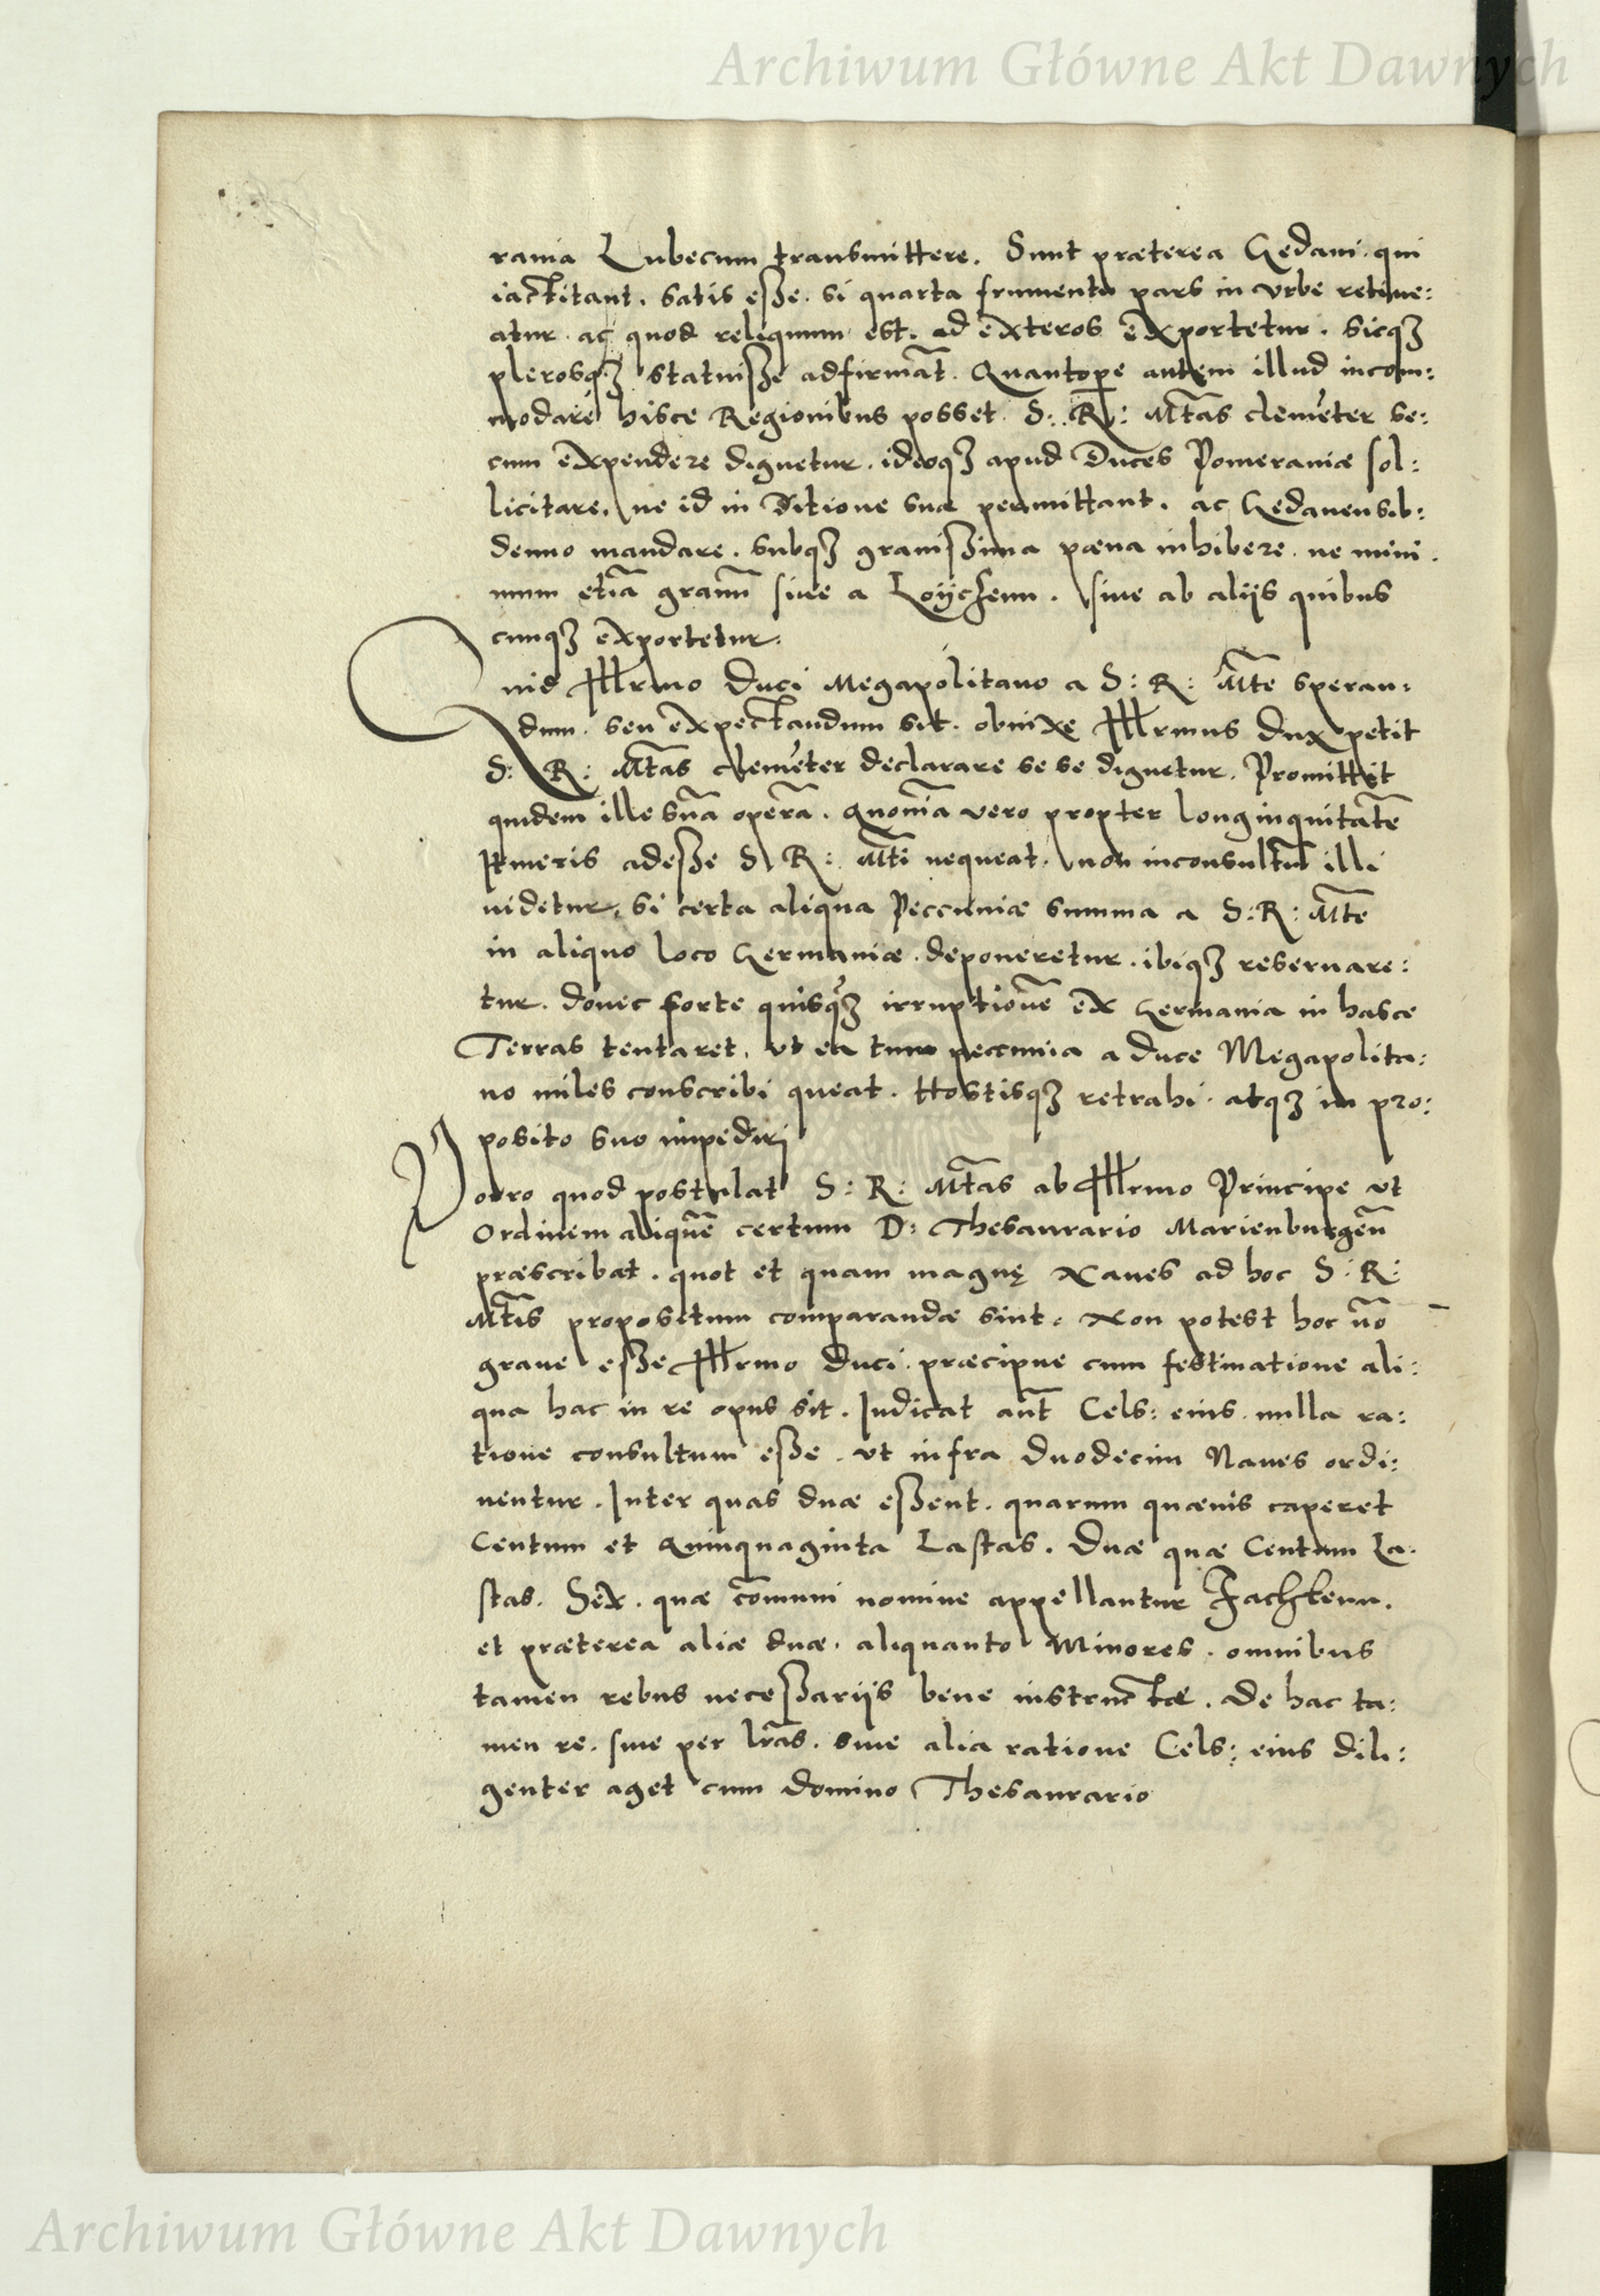 Archiwum Główne Akt Dawnych
rania Lubecum transmittere. Sunt præterea Gedani qui
iactitant. satis esse. si quarta frumenti pars in urbe retine:
atur. ac quod reliquum est. ad exteros exportetur. sicqꝫ
plerosqꝫ statuisse adfirmãt. Quantope̱ autem illud incom:
modare hisce Regionibus posset. S: R: Mt̃as clemẽter se:
cum expendere dignetur. ideoqꝫ apud Duces Pomeraniæ sol:
licitare, ne id in Ditione sua permittant. ac Gedanensib:
denuo mandare. subqꝫ grauissima pæna inhibere. ne mini.
mum etiã granũ siue a Loÿchenn. siue ab alijs quibus
cunqꝫ exportetur.
Quid Illrmo Duci Megapolitano a S: R: Mt̃e speran:
dum. seu expectandum sit. obnixe Illrmus Dux petit
S: R: Mt̃as clemẽter declarare se se dignetur. Promittit
quidem ille suã operã. Quoniã vero propter longinquitatẽ
Itineris adesse S R: Mt̃i nequeat. non inconsultũ illi
uidetur, si certa aliqua Peccuniæ summa a S: R: Mt̃e
in aliquo loco Germaniæ. deponeretur. ibiqꝫ reseruare:
tur. donec forte quisqꝫ̃ irruptionẽ ex Germania in hasce
Terras tentaret, ut ea tum peccunia a Duce Megapolita:
no miles conscribi queat. Hostisqꝫ retrahi. atqꝫ in pro:
posito suo impediri
Porro quod postulat S: R: Mt̃as ab Illrmo Principe ut
Ordinem aliquẽ certum D: Thesaurario Marienburgeñ
præscribat. quot et quam magnę Naues ad hoc S: R:
Mt̃is propositum comparandæ sint. Non potest hoc ũo
graue esse Illrmo Duci. præcipue cum festinatione ali:
qua hac in re opus sit. Iudicat aũt Cels: eius. nulla ra:
tione consultum esse. ut infra Duodecim Naues ordi:
nentur. Inter quas duæ essent. quarum quæuis caperet
Centum et Quinquaginta Lastas. Duæ quæ Centum La.
stas. Sex. quæ cõmuni nomine appellantur Jachtenn.
et præterea aliæ duæ. aliquanto Minores. omnibus
tamen rebus necessarijs bene instructæ. De hac ta:
men re. siue per lr̃as. siue alia ratione Cels: eius dili:
genter aget cum Domino Thesaurario
Archiwum Główne Akt Dawnych